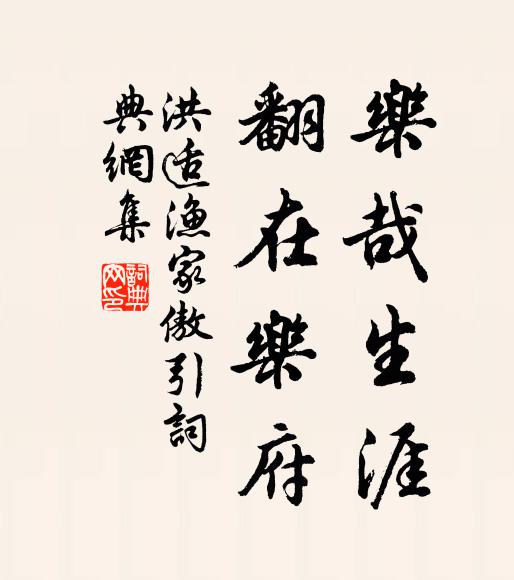 樂哉生涯
翻在樂府
洪适漁家傲引詞
典網集
詞典網印